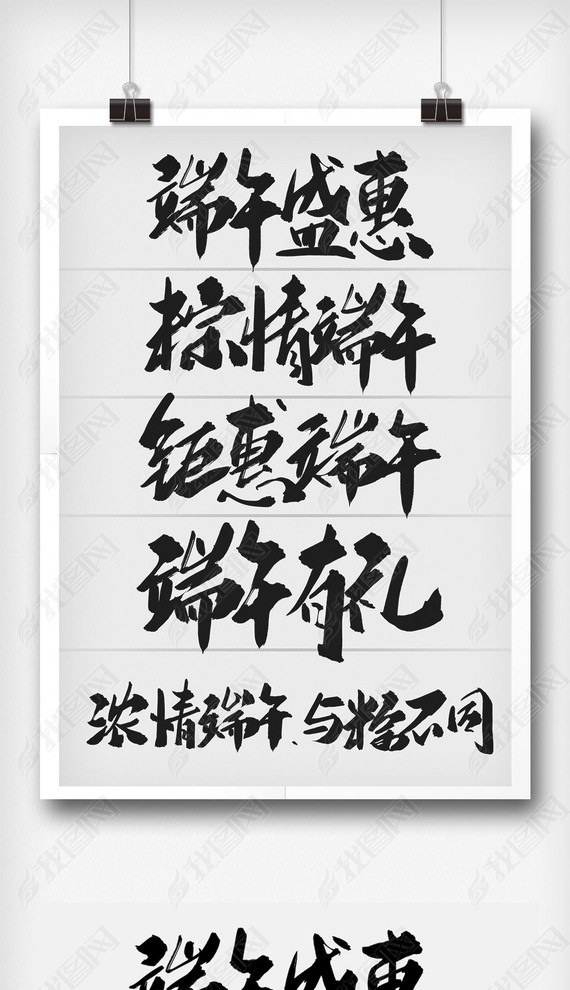 端午盛惠
棕情端午
钜惠端午
端午有礼
浓情端午、与粽不同
端午盛惠